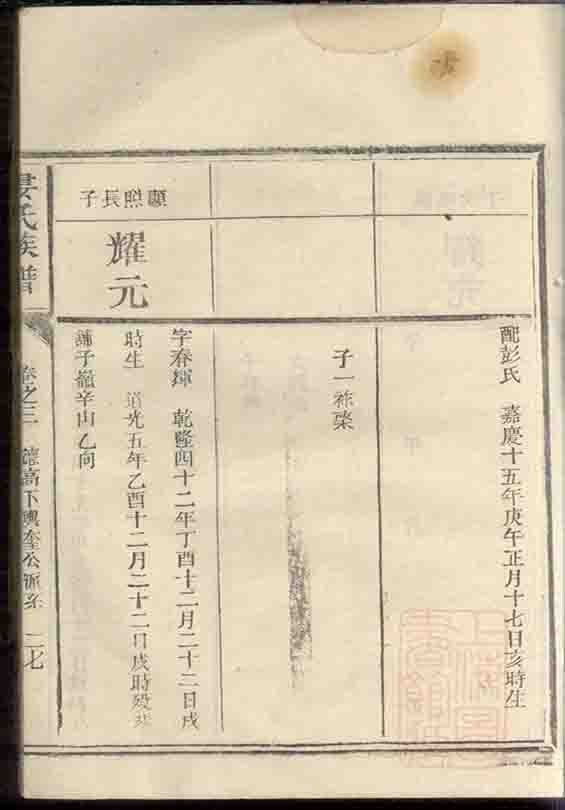 配彭氏　嘉慶十五年庚午正月十七日亥時生
子一
顯照長子
耀元
字春輝　乾隆四十二年丁酉十二月二十二日戌
時生　道光五年乙酉十二月二十二日戌時歿
鋪子嶺辛山乙向
氏族譜
卷之三　高下輿奎公派系　二七
上海圖書館藏